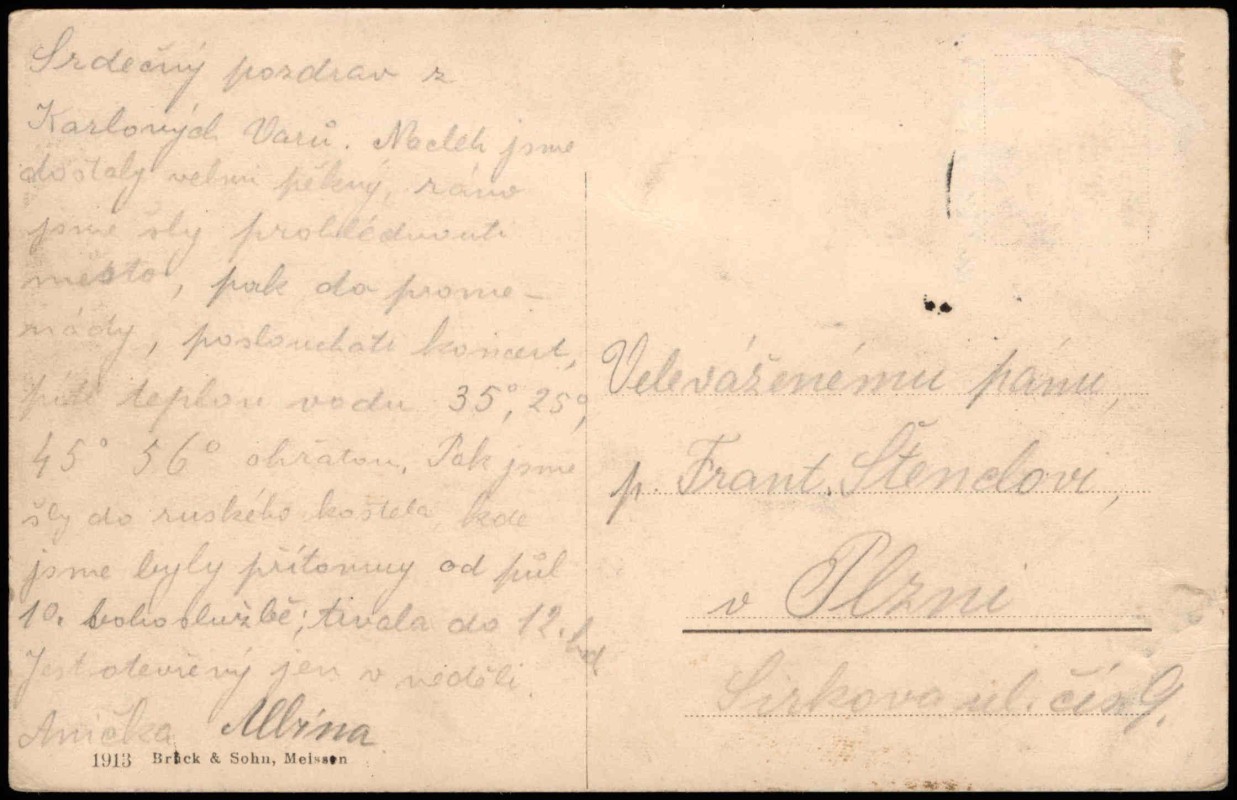 Srdečný pozdrav z
Karlových Varů. Nocleh jsme
dostaly velmi pěkný, ráno
jsme šly prohlédnouti
město, pak do prome-
nády, poslouchati koncert,
píti teplou vodu 35°, 25°,
45° 56° ohřátou. Pak jsme
šly do ruského kostela, kde
jsme byly přítomny od půl
10. bohoslužbě; trvala do 12. hod
Jest otevřený jen v neděli.
Anička Albína
1913 Brück & Sohn, Meissen
Velevaženému pánu,
p. Frant. Štenclovi,
v Plzni
Sirkova ul. čís 9.